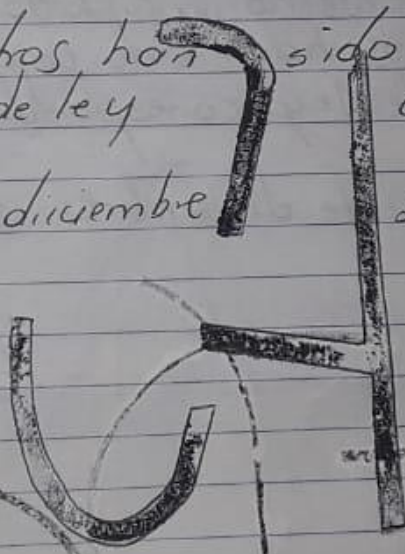 hos han sido
de ley
diiciembre